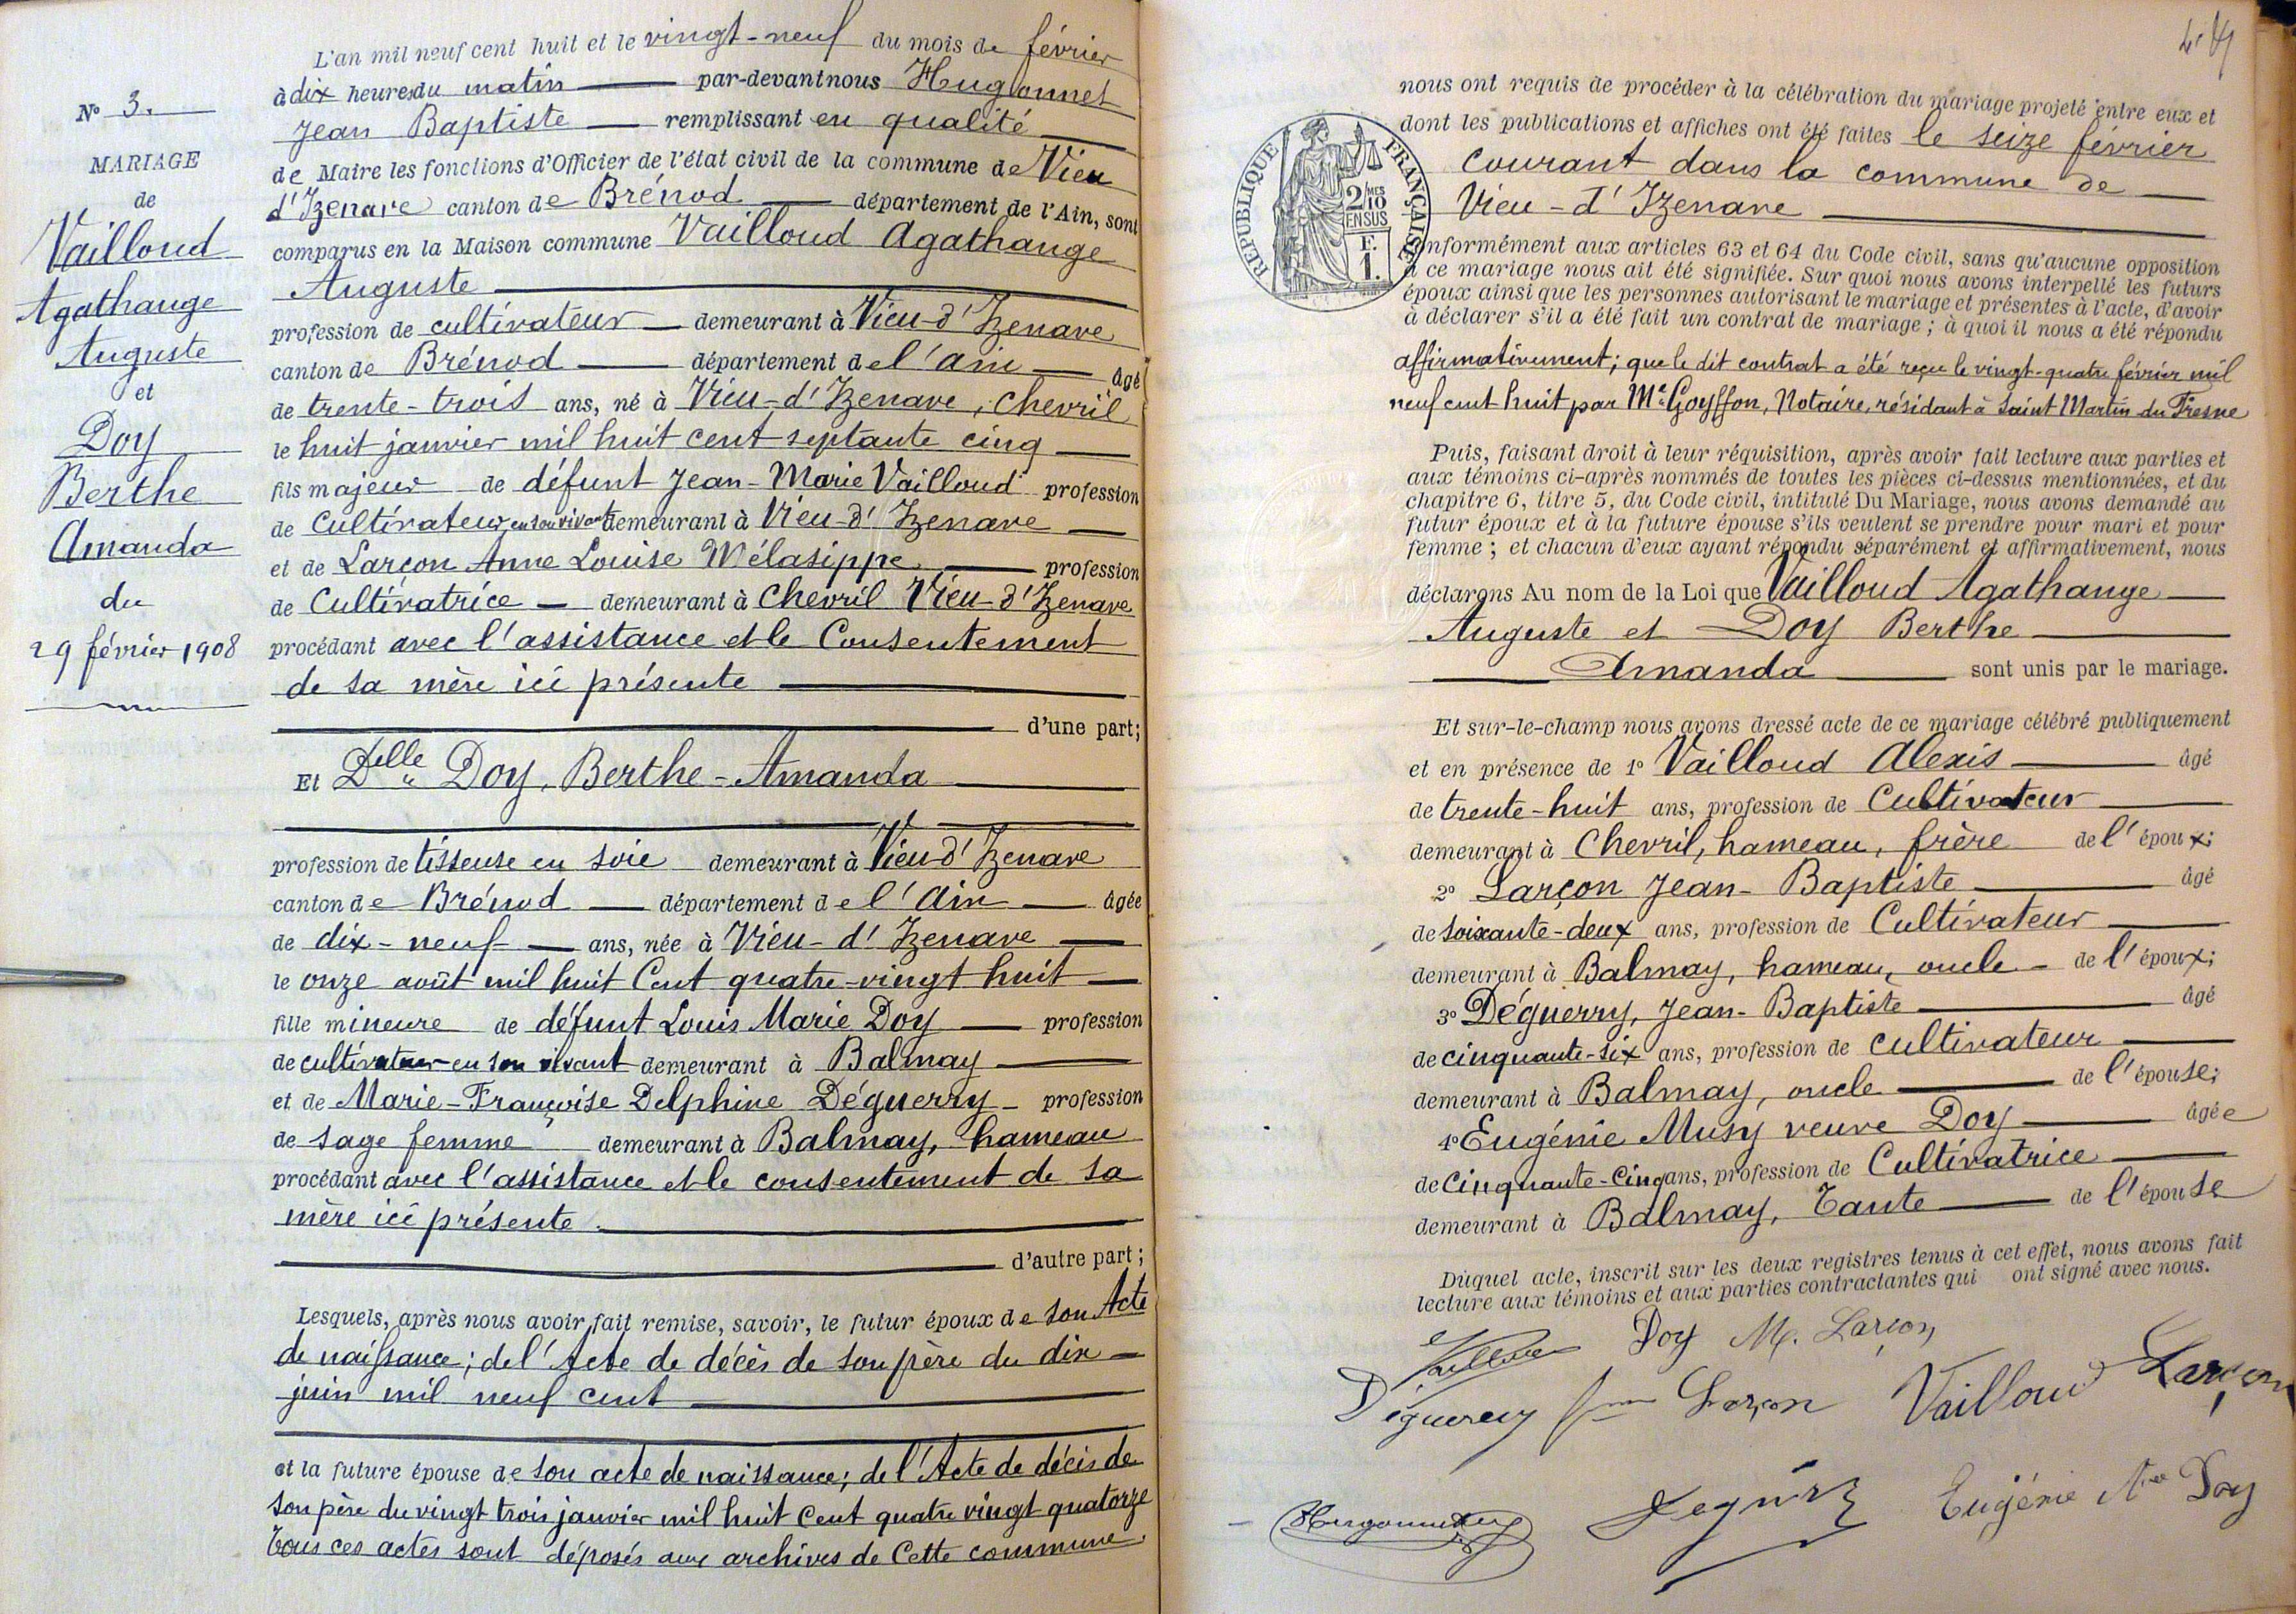 N° 3.
MARIAGE
de
Vailloud
Agathange
Auguste
et
Doy
Berthe
Amanda
du
29 février 1908
L'an mil neuf cent huit et le vingt-neuf du mois de février
à dix heures du matin par-devant nous Hugonnet
Jean Baptiste remplissant en qualité
de Maire les fonctions d'Officier de l'état civil de la commune de Vieu
d'Izenave canton de Brénod département de l'Ain, sont
comparus en la Maison commune Vailloud Agathange
Auguste
profession de cultivateur demeurant à Vieu-d'Izenave
canton de Brénod département de l'Ain âgé
de trente-trois ans, né à Vieu-d'Izenave, Chevril
le huit janvier mil huit cent septante cinq
fils majeur de défunt Jean-Marie Vailloud profession
de Cultivateur en son vivant demeurant à Vieu-d'Izenave
et de Larçon Anne Louise Mélasippe profession
de Cultivatrice demeurant à Chevril Vieu-d'Izenave
procédant avec l'assistance et le Consentement
de sa mère ici présente
d'une part;
Et Delle Doy, Berthe-Amanda
profession de tisseuse en soie demeurant à Vieu-d'Izenave
canton de Brénod département de l'Ain âgée
de dix-neuf ans, née à Vieu-d'Izenave
le onze août mil huit Cent quatre-vingt huit
fille mineure de défunt Louis Marie Doy profession
de cultivateur en son vivant demeurant à Balmay
et de Marie-Françoise Delphine Déguerry profession
de sage femme demeurant à Balmay, hameau
procédant avec l'assistance et le consentement de sa
mère ici présente.
d'autre part;
Lesquels, après nous avoir fait remise, savoir, le futur époux de son Acte
de naissance; de l'Acte de décès de son père du dix
juin mil neuf cent
et la future épouse de son acte de naissance; de l'Acte de décès de
son père du vingt trois janvier mil huit Cent quatre vingt quatorze
Tous ces actes sont déposés aux archives de Cette commune
nous ont requis de procéder à la célébration du mariage projeté entre eux et
dont les publications et affiches ont été faites le seize février
courant dans la commune de
Vieu-d'Izenave
conformément aux articles 63 et 64 du Code civil, sans qu'aucune opposition
à ce mariage nous ait été signifiée. Sur quoi nous avons interpellé les futurs
époux ainsi que les personnes autorisant le mariage et présentes à l'acte, d'avoir
à déclarer s'il a été fait un contrat de mariage; à quoi il nous a été répondu
affirmativement; que le dit contrat a été reçu le vingt-quatre février mil
neuf cent huit par Me Goyffon, Notaire, résidant à Saint Martin du Fresne
REPUBLIQUE FRANÇAISE
2/10 MES
EN SUS
F.
1.
Puis, faisant droit à leur réquisition, après avoir fait lecture aux parties et
aux témoins ci-après nommés de toutes les pièces ci-dessus mentionnées, et du
chapitre 6, titre 5, du Code civil, intitulé Du Mariage, nous avons demandé au
futur époux et à la future épouse s'ils veulent se prendre pour mari et pour
femme; et chacun d'eux ayant répondu séparément et affirmativement, nous
déclarons Au nom de la Loi que Vailloud Agathange
Auguste et Doy Berthe
Amanda sont unis par le mariage.
Et sur-le-champ nous avons dressé acte de ce mariage célébré publiquement
et en présence de 1° Vailloud Alexis âgé
de trente-huit ans, profession de Cultivateur
demeurant à Chevril, hameau, frère de l'époux;
2° Larçon Jean-Baptiste âgé
de soixante-deux ans, profession de Cultivateur
demeurant à Balmay, hameau, oncle de l'époux;
3° Déguerry, Jean-Baptiste âgé
de cinquante-six ans, profession de cultivateur
demeurant à Balmay, oncle de l'épouse;
4° Eugénie Musy veuve Doy âgée
de cinquante-cinq ans, profession de Cultivatrice
demeurant à Balmay, Tante de l'épouse
Duquel acte, inscrit sur les deux registres tenus à cet effet, nous avons fait
lecture aux témoins et aux parties contractantes qui ont signé avec nous.
Doy M. Larçon
Déguerry Larçon Vailloud Larçon
Eugénie Vve Doy